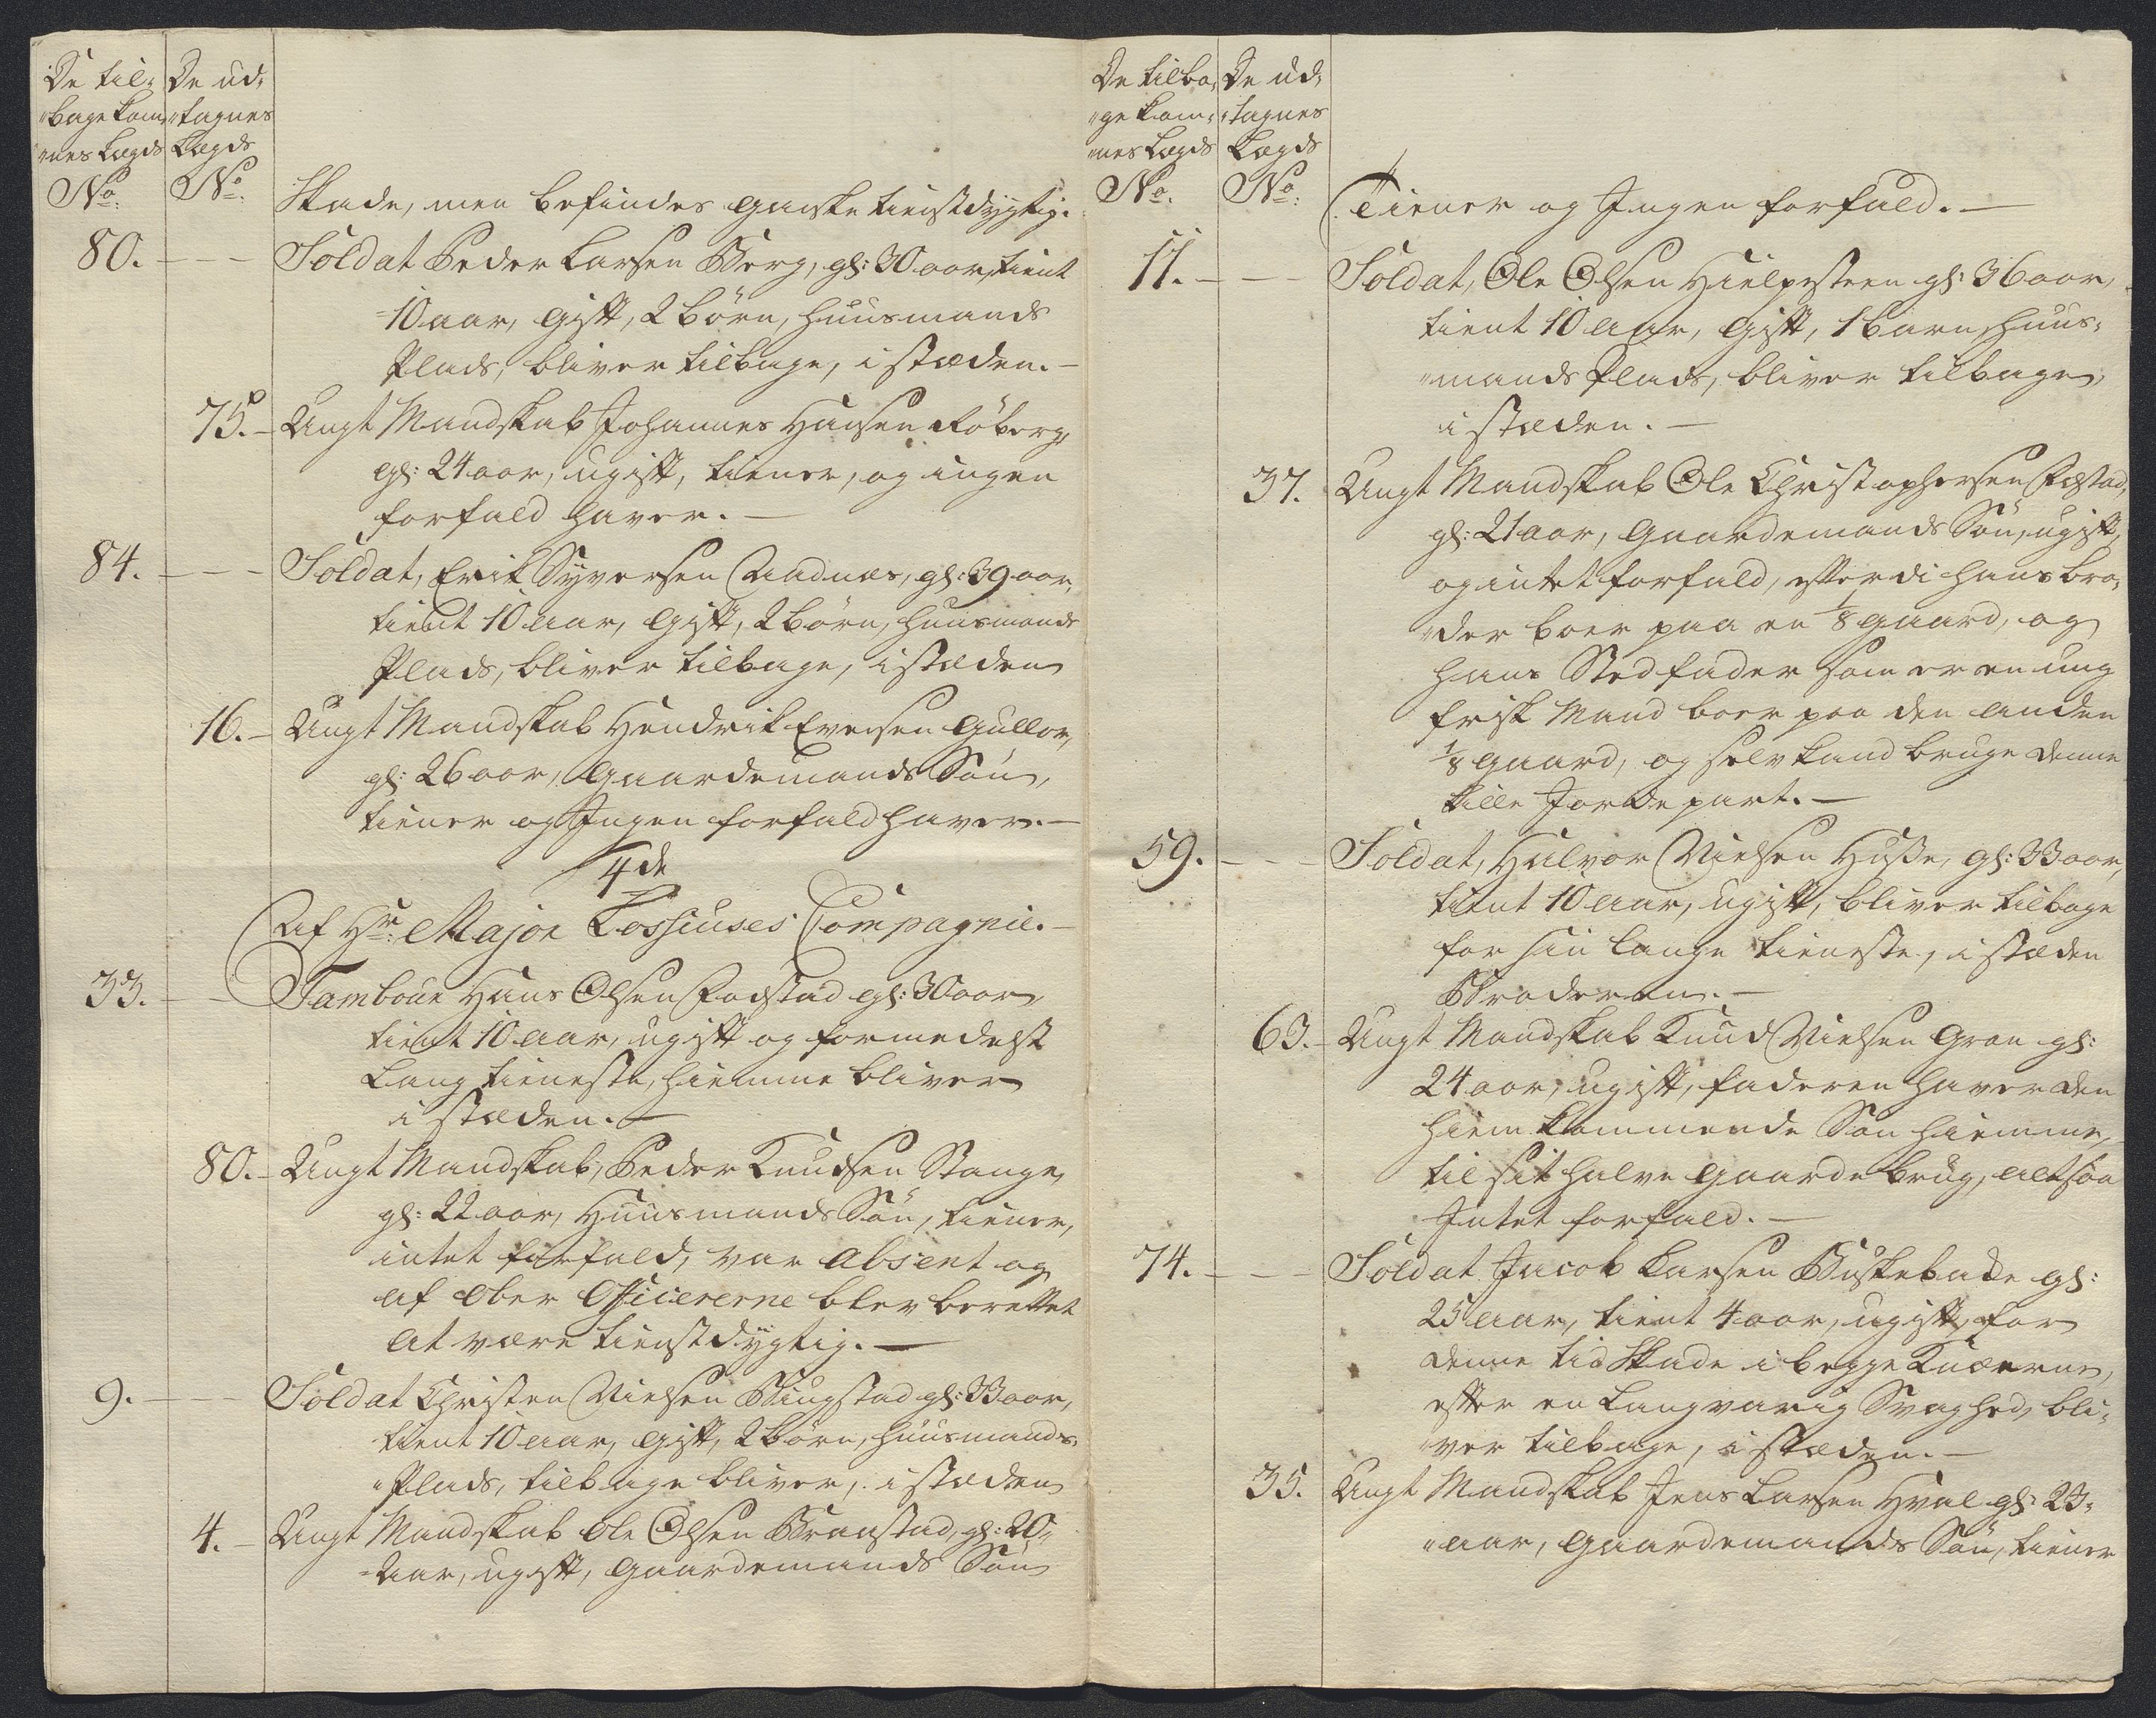 De til-
bagekom-
nes Lægds
No.
De ud-
tagnes
Lægds
No.
Skade, men befindes ganske tienstdygtig.
80. Soldat Peder Larsen Berg, gl: 30 aar, tient
10 aar, gift, 2 börn, huusmands
Plads, bliver tilbage, i stæden.
75. Ungt Mandskab Johannes Hansen Röberg,
gl: 24 aar, ugift, tiener, og ingen
forfald haver.
84. Soldat, Erik Syversen Andnæs, gl: 39 aar,
tient 10 aar, gift, 2 börn, huusmands
Plads, bliver tilbage, i stæden
16. Ungt Mandskab Hendrik Evensen Gullor,
gl: 26 aar, Gaardemands Sön,
tiener og Ingen forfald haver.
4de
Af Hr: Major Lossiuses Compagnie.
33. Tambour Hans Olsen Fodstad gl: 30 aar,
tient 10 aar, ugift og formedelst
Lang tieneste, hiemme bliver
i stæden.
80. Ungt Mandskab, Peder Knudsen Stange,
gl: 22 aar, Huusmands Sön, tiener,
intet forfald, var absent og
af Ober Officererne blev berettet
at være tienstdygtig.
9. Soldat Christen Nielsen Ringstad gl: 33 aar,
tient 10 aar, gift, 2 börn, huusmands
Plads, tilbage bliver, i stæden
4. Ungt Mandskab Ole Olsen Branstad, gl: 20
Aar, ugift, gaardemands Sön
De tilba-
gekom-
nes Lægds
No.
De ud-
tagnes
Lægds
No.
Tiener og Ingen forfald.
11. Soldat, Ole Olsen Hielpesteen gl: 36 aar,
tient 10 aar, gift, 1 barn, huus-
mands Plads, bliver tilbage,
i stæden.
37. Ungt Mandskab Ole Christophersen
gl: 21 aar, Gaardemands Sön, ugift,
og intet forfald, efterdi hans bro-
der boer paa en 1/8 gaard, og
hans Stedfader som er en ung
frisk Mand boer paa den anden
1/8 gaard, og selv kand bruge denne
lille Jordepart.
59. Soldat, Halvor Nielsen Husse, gl: 33 aar,
tient 10 aar, ugift, bliver tilbage
for sin lange tieneste, i stæden
Broderen.
63. Ungt Mandskab Knud Nielsen Gran gl:
24 aar, ugift, faderen haver den
hiemkommende Sön hiemme,
til sit halve gaarde brug, altsaa
Intet forfald.
74. Soldat Jacob Larsen Buskebade gl:
25 aar, tient 4 aar, ugift, for
denne tid Skade i begge Knæerne,
efter en Langvarig Svaghed, bli-
ver tilbage, i stæden.
35. Ungt Mandskab Jens Larsen Hval gl: 23
aar, Gaardemands Sön, tiener